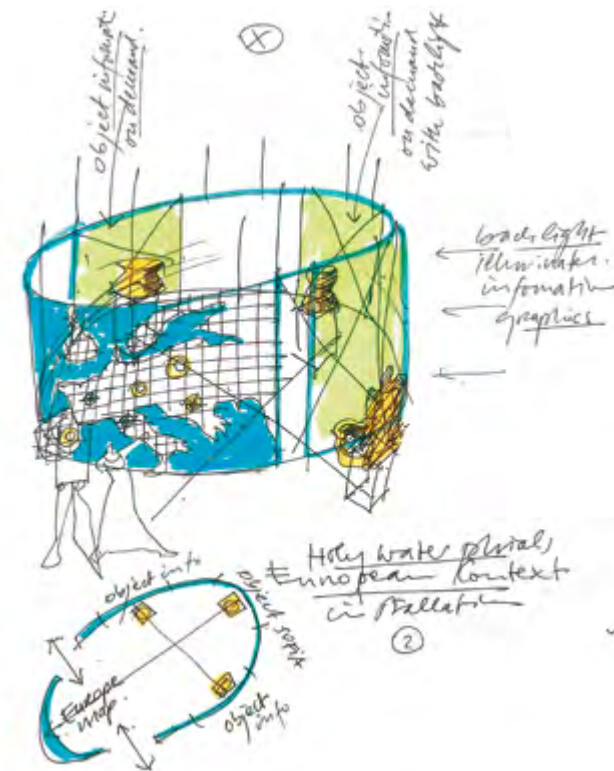 object informati
on demand.
X
object
informati
on demand
with backlight
backlight
illuminates
information
graphics
Holy water phials
European Context
installation
2
object info
object
Europe
map.
object
info